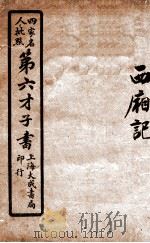 西廂記
四家名
人批點
第六才子書
上海大成書局
印行